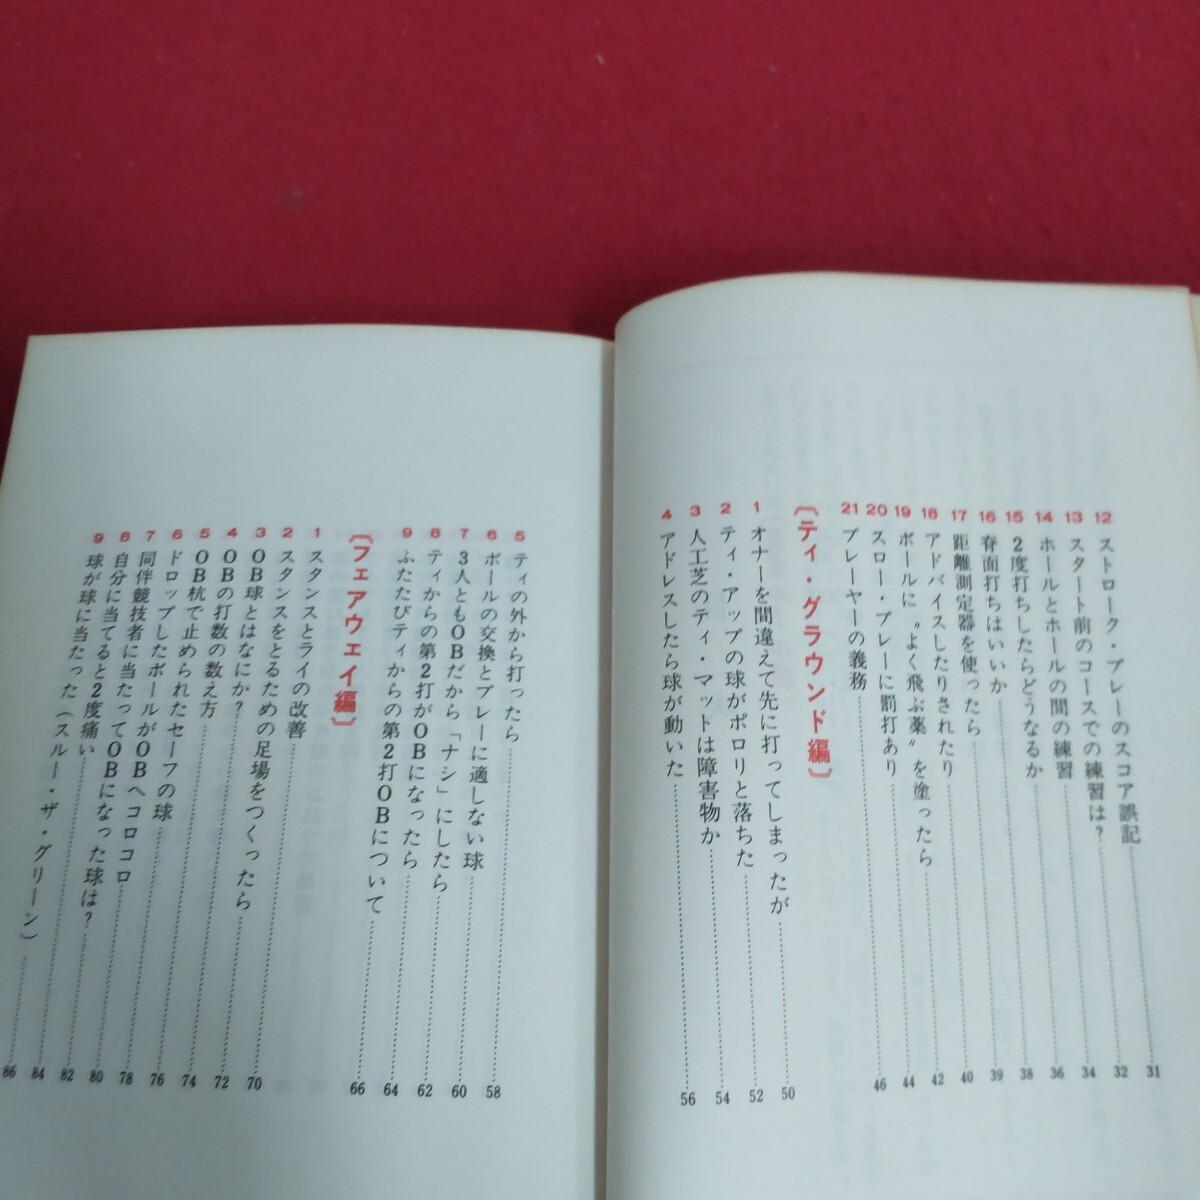 12 ストローク・プレーのスコア誤記……31
13 スタート前のコースでの練習は？……32
14 ホールとホールの間の練習……34
15 2度打ちしたらどうなるか……36
16 脊面打ちはいいか……38
17 距離測定器を使ったら……39
18 アドバイスしたりされたり……40
19 ボールに〝よく飛ぶ薬〟を塗ったら……42
20 スロー・プレーに罰打あり……44
21 プレーヤーの義務……46
〔ティ・グラウンド編〕
1 オナーを間違えて先に打ってしまったが……50
2 ティ・アップの球がポロリと落ちた……52
3 人工芝のティ・マットは障害物か……54
4 アドレスしたら球が動いた……56
5 ティの外から打ったら……58
6 ボールの交換とプレーに適しない球……60
7 3人ともOBだから「ナシ」にしたら……62
8 ティからの第2打がOBになったら……64
9 ふたたびティからの第2打OBについて……66
〔フェアウェイ編〕
1 スタンスとライの改善……70
2 スタンスをとるための足場をつくったら……72
3 OB球とはなにか？……74
4 OBの打数の数え方……76
5 OB杭で止められたセーフの球……78
6 ドロップしたボールがOBへコロコロ……80
7 同伴競技者に当たってOBになった球は？……82
8 自分に当てると2度痛い……84
9 球が球に当たった（スルー・ザ・グリーン）……86